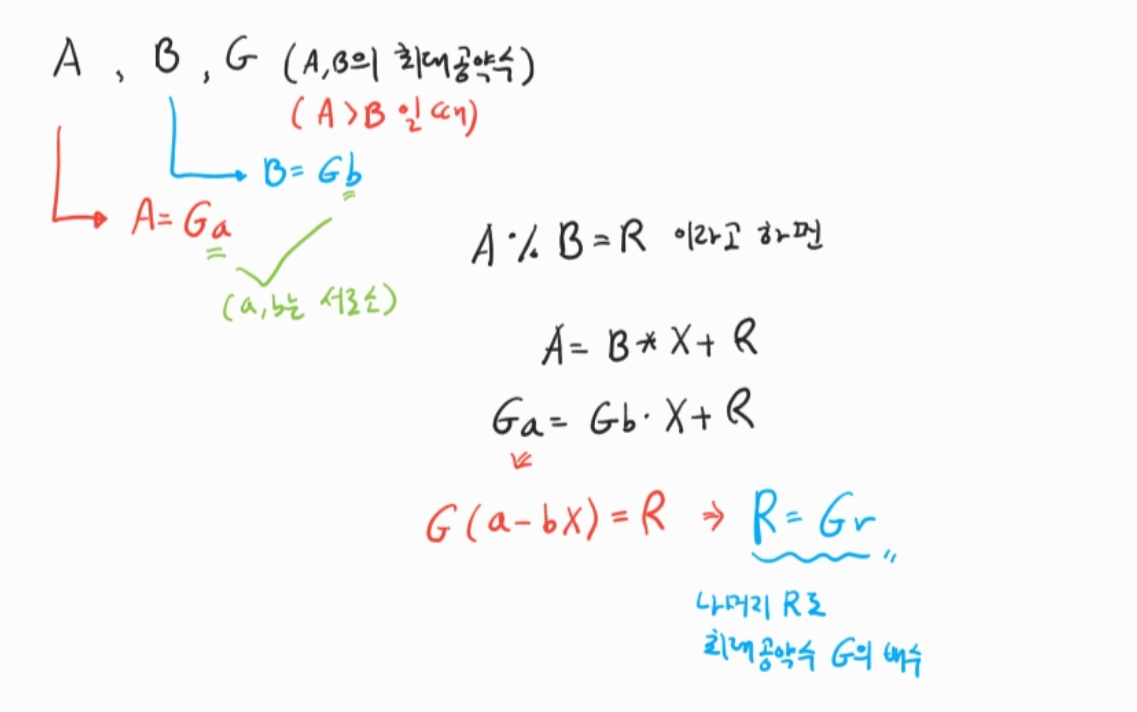 A , B , G (A,B의 최대공약수)
(A>B 일 때)
B= Gb
A= Ga
(a,b는 서로소)
A % B = R 이라고 하면
A= B * X + R
Ga= Gb · X + R
G(a-bX) = R ⇒ R= Gr
나머지 R도
최대공약수 G의 배수